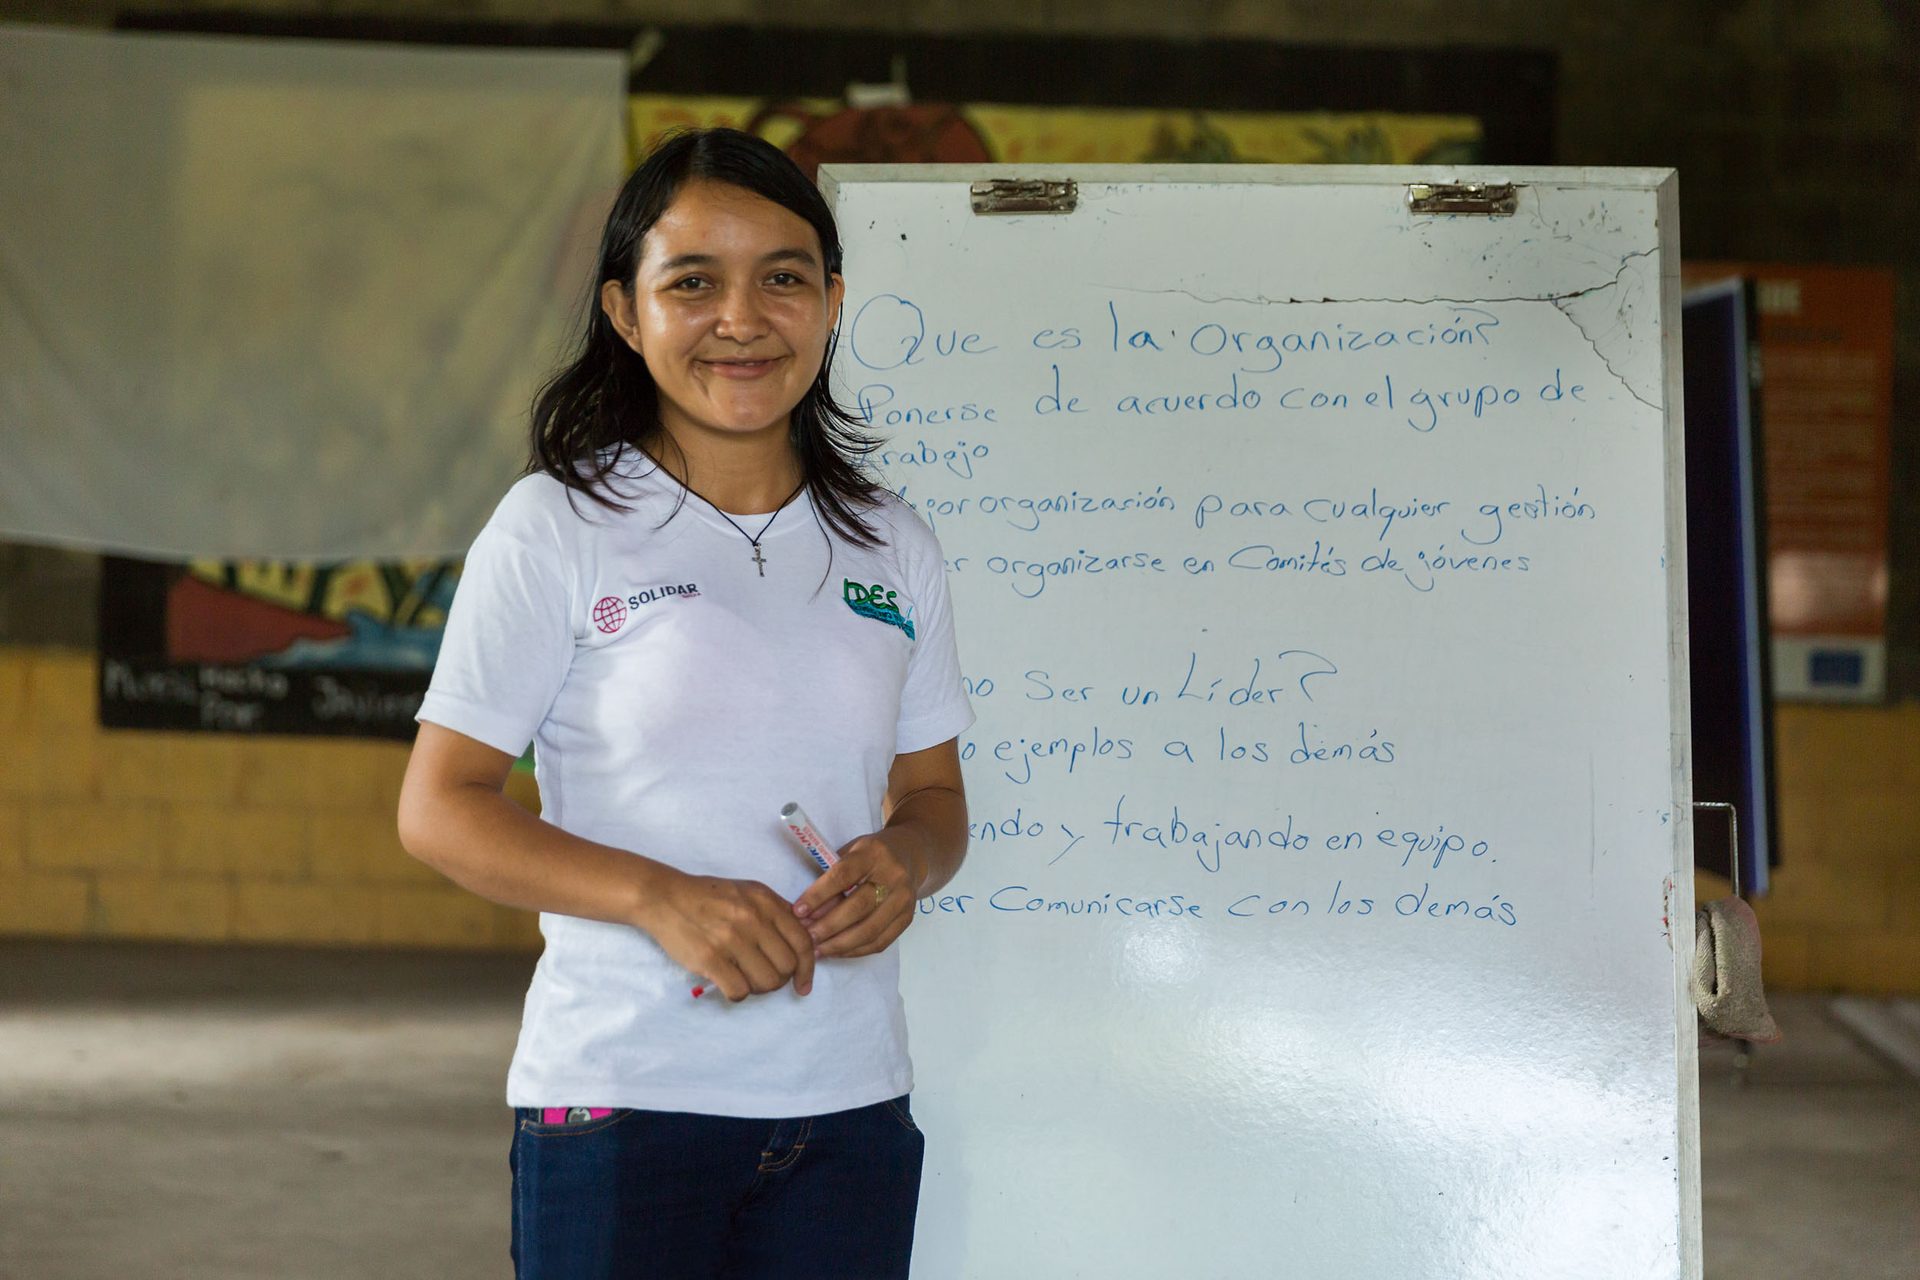 Que es la Organización?
Ponerse de acuerdo con el grupo de
trabajo
organización para cualquier gestión
organizarse en Comités de jóvenes
Ser un Líder?
ejemplos a los demás
y trabajando en equipo.
Comunicarse con los demás
SOLIDAR
IDES